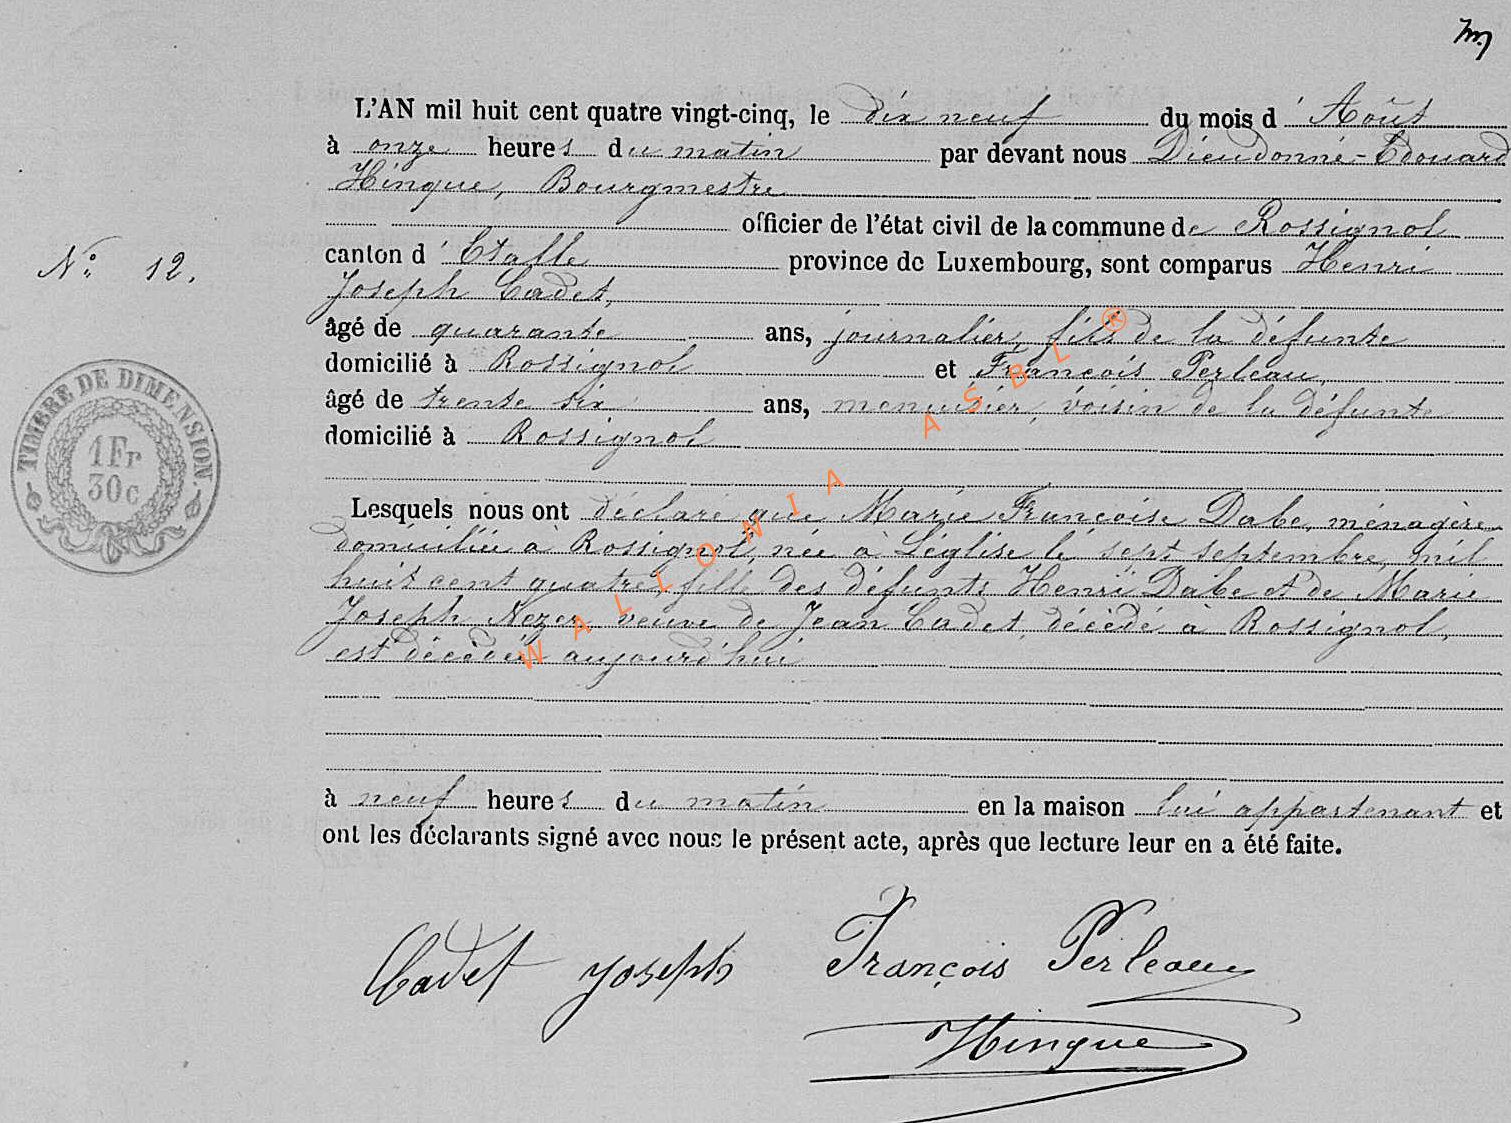 L'AN mil huit cent quatre vingt-cinq, le dix neuf du mois d' Août
à onze heures du matin par devant nous Dieudonné-Edouard
Hinque, Bourgmestre
officier de l'état civil de la commune de Rossignol
canton d' Etalle province de Luxembourg, sont comparus Henri
N° 12.
Joseph Cadet,
âgé de quarante ans, journalier, fils de la défunte
domicilié à Rossignol et François Perleau,
âgé de trente six ans, menuisier, voisin de la défunte
domicilié à Rossignol
TIMBRE DE DIMENSION.
1 Fr
30c
Lesquels nous ont déclaré que Marie Françoise Dabe, ménagère
domiciliée à Rossignol, née à Léglise le sept septembre, mil
huit cent quatre, fille des défunts Henri Dabe et de Marie
Joseph Nezer, veuve de Jean Cadet, décédé à Rossignol,
est décédée aujourd'hui
WALLONIA ASBL ®
à neuf heures du matin en la maison lui appartenant et
ont les déclarants signé avec nous le présent acte, après que lecture leur en a été faite.
Cadet Joseph François Perleau
Hinque